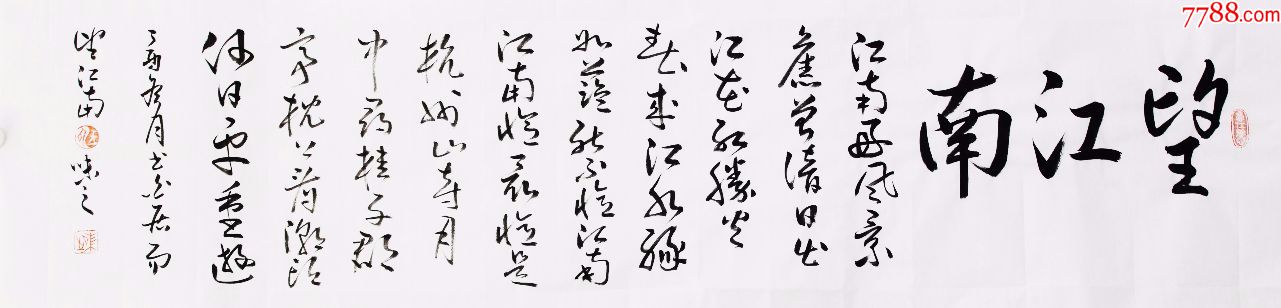 7788.com
望江南
江南好风景
舊曾谙日出
江花红胜火
春来江水绿
如蓝能不忆江南
江南忆最忆是
杭州山寺月
中寻桂子郡
亭枕上看潮头
何日更重游
冬月书白居易
望江南